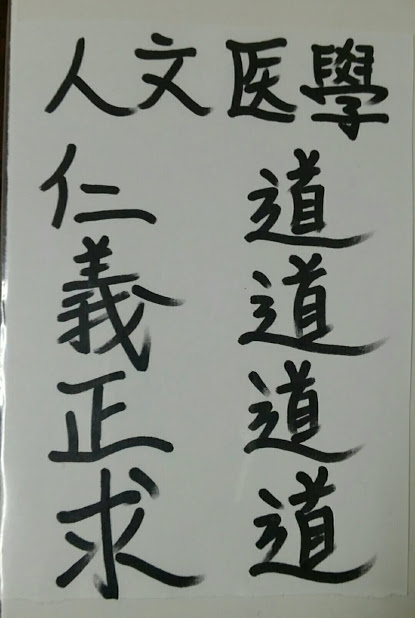 人文医學
仁道
義道
正道
求道